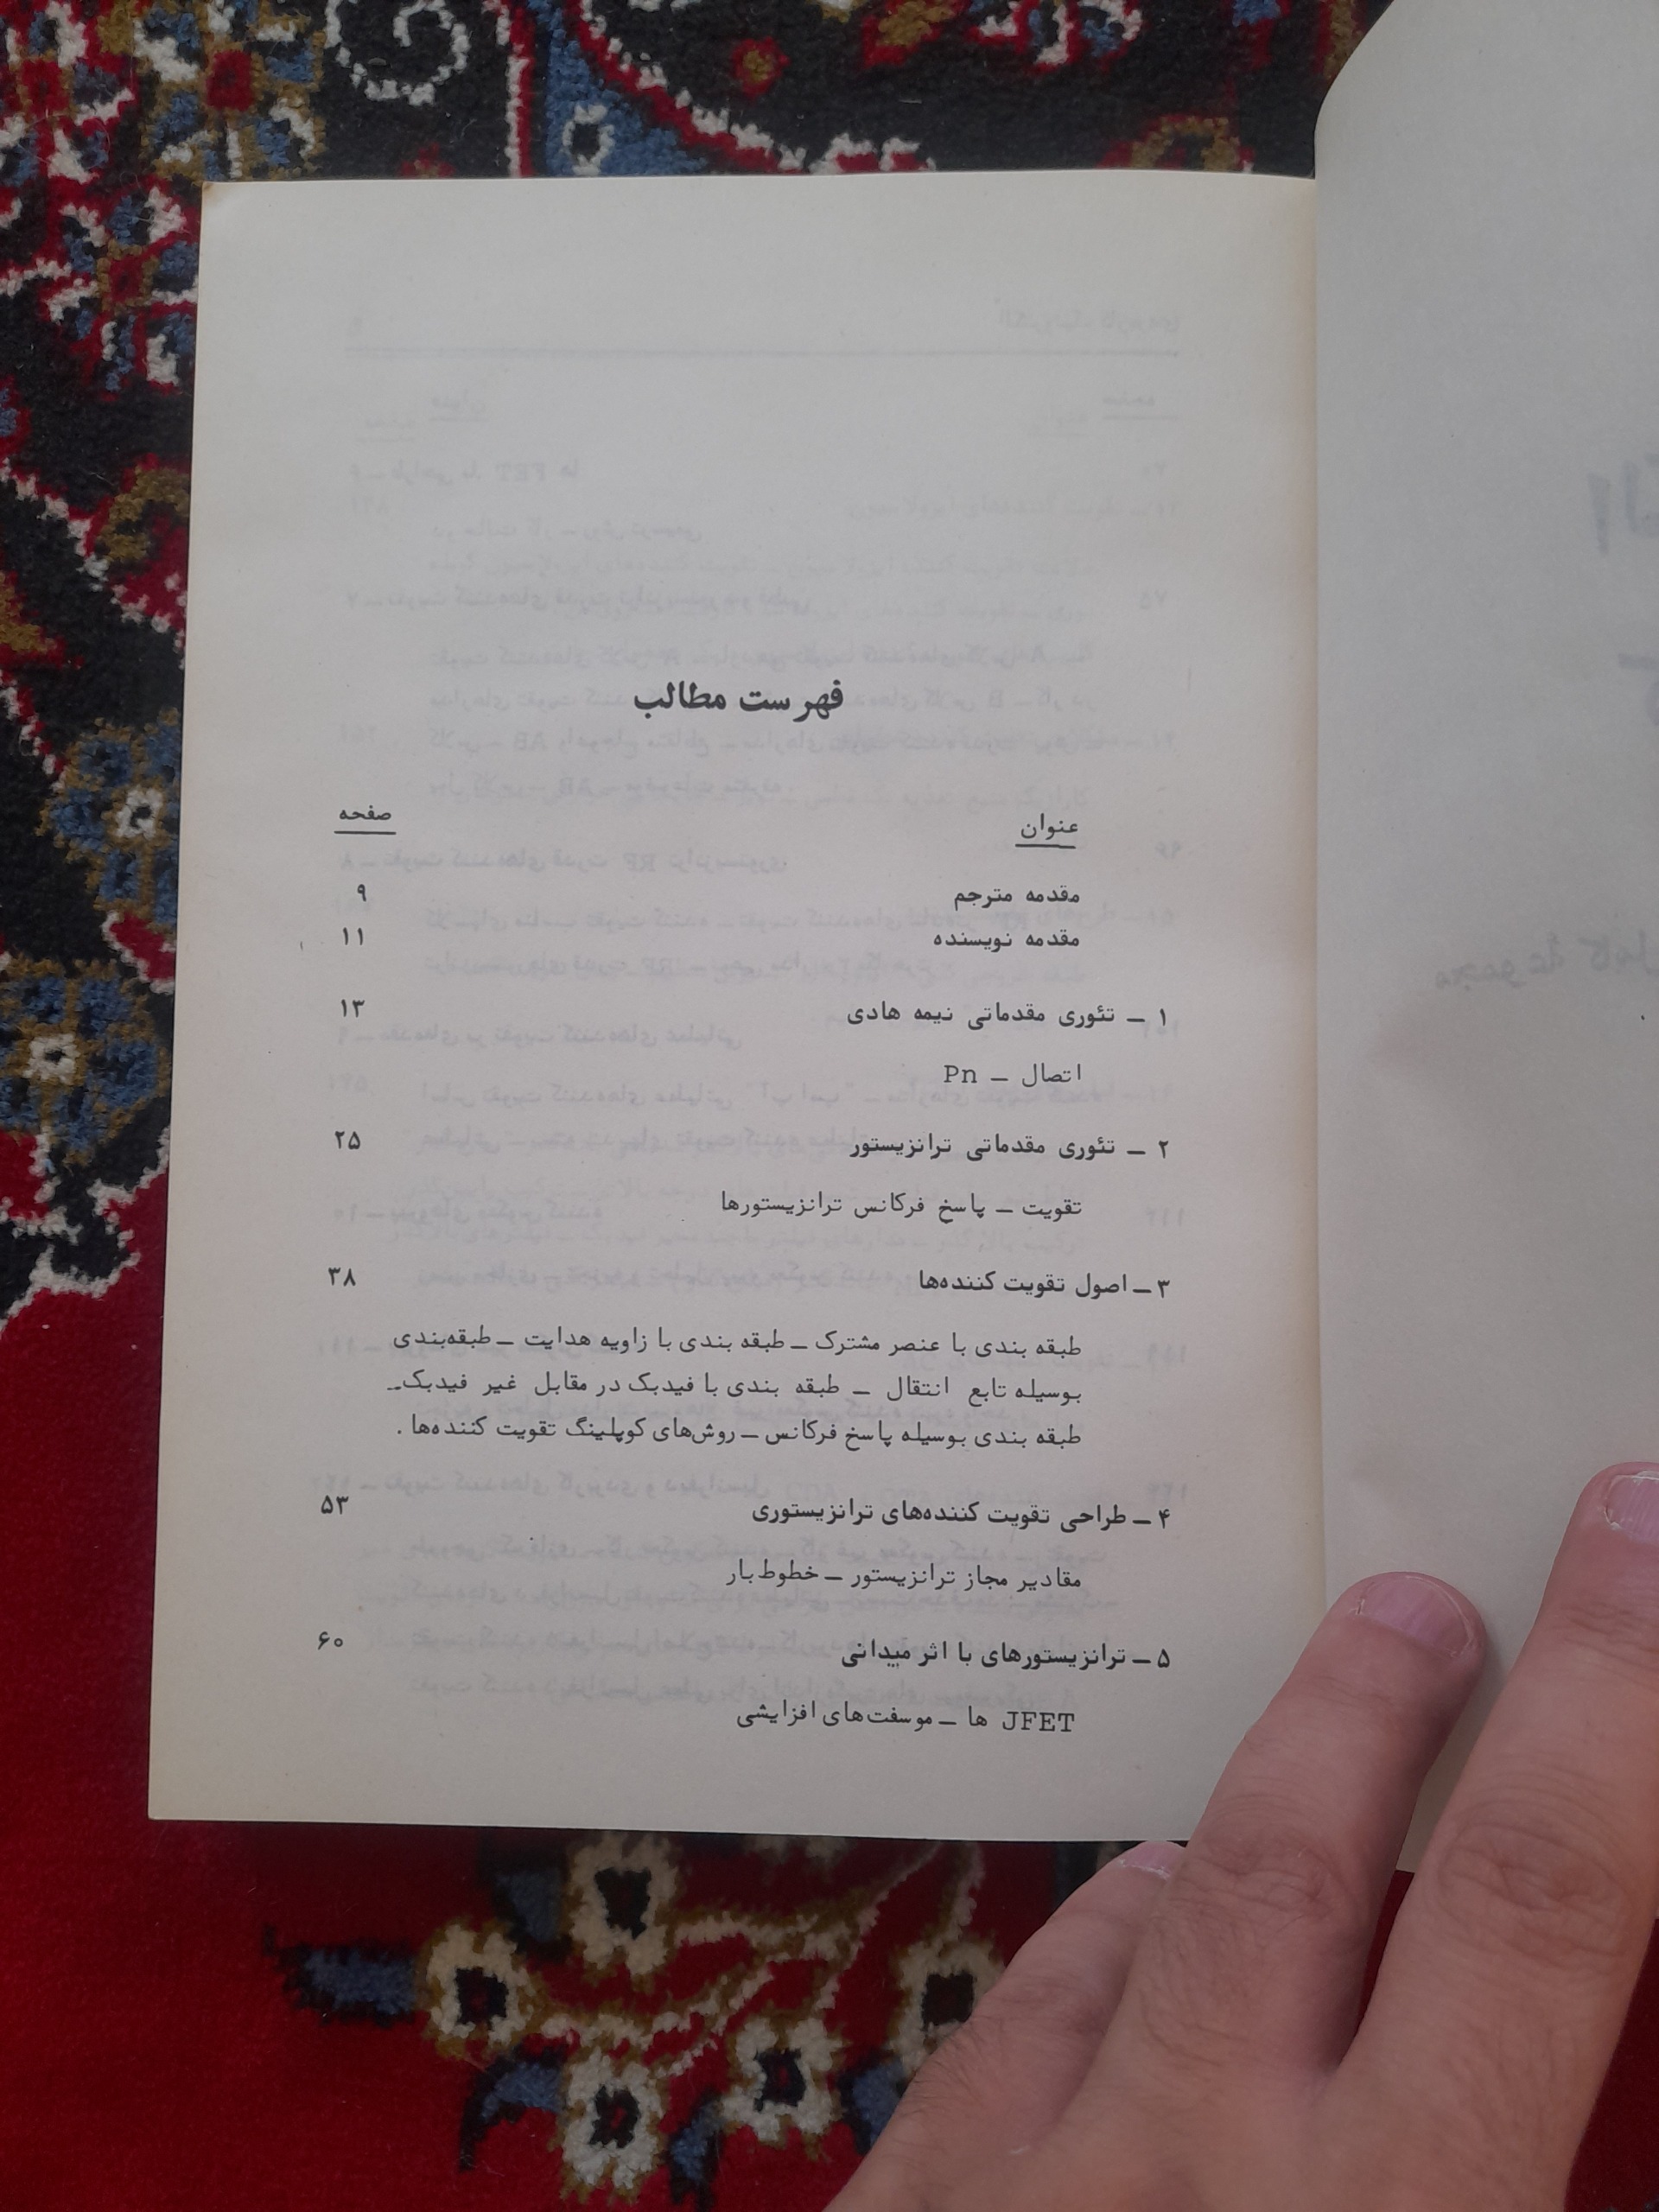 فهرست مطالب
عنوان صفحه
مقدمه مترجم ۹
مقدمه نویسنده ۱۱
۱ ـ تئوری مقدماتی نیمه هادی ۱۳
اتصال ـ Pn
۲ ـ تئوری مقدماتی ترانزیستور ۲۵
تقویت ـ پاسخ فرکانس ترانزیستورها
۳ ـ اصول تقویت کننده‌ها ۳۸
طبقه بندی با عنصر مشترک ـ طبقه بندی با زاویه هدایت ـ طبقه‌بندی
بوسیله تابع انتقال ـ طبقه بندی با فیدبک در مقابل غیر فیدبک ـ
طبقه بندی بوسیله پاسخ فرکانس ـ روش‌های کوپلینگ تقویت کننده‌ها .
۴ ـ طراحی تقویت کننده‌های ترانزیستوری ۵۳
مقادیر مجاز ترانزیستور ـ خطوط بار
۵ ـ ترانزیستورهای با اثر میدانی ۶۰
JFET ها ـ موسفت‌های افزایشی